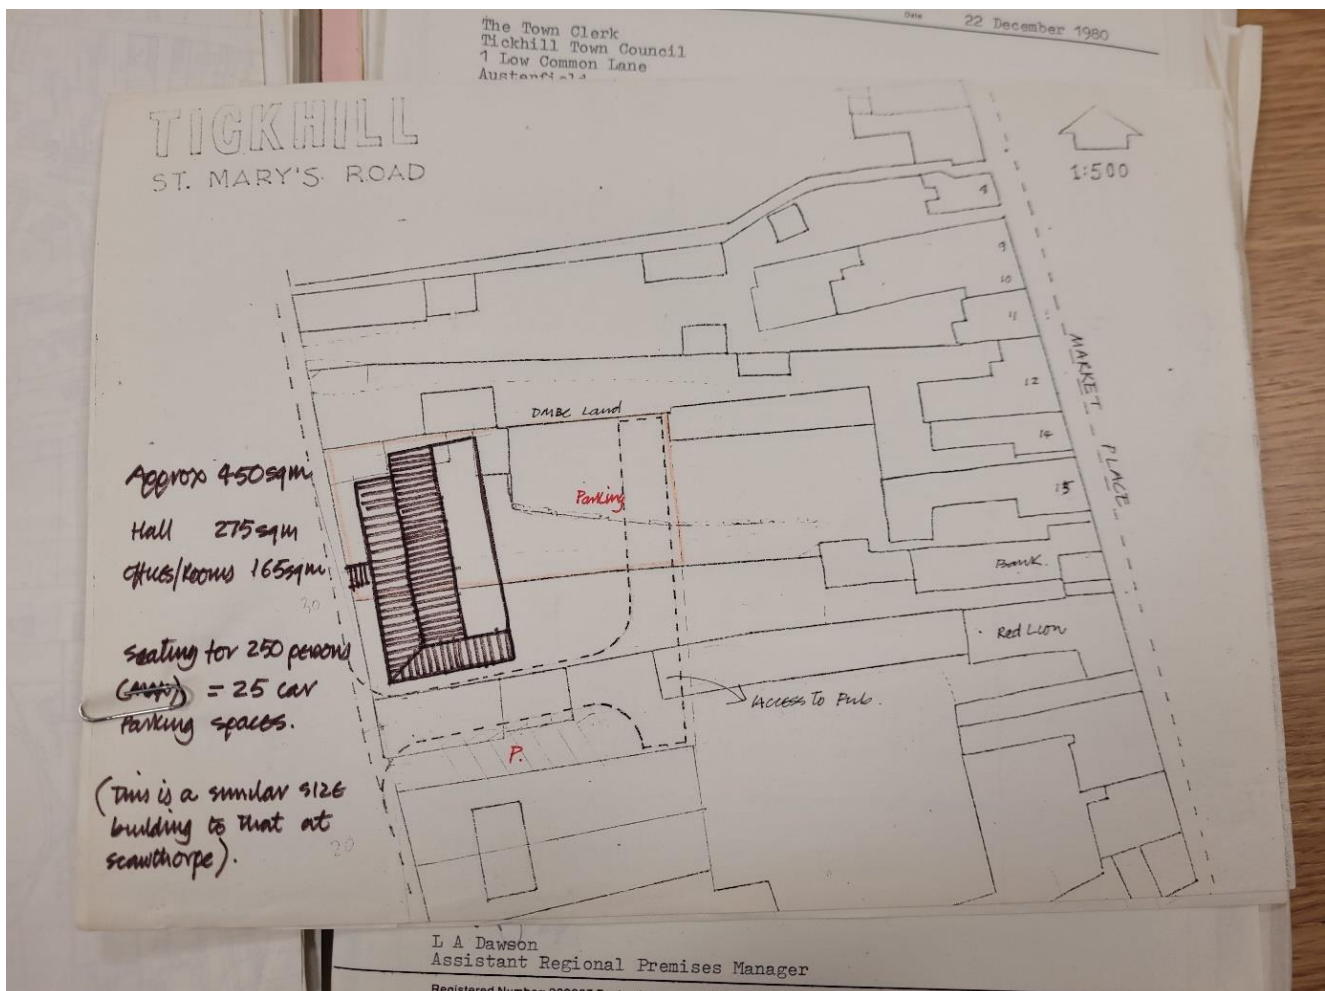 Date
22 December 1980
The Town Clerk
Tickhill Town Council
1 Low Common Lane
Austerfield
TICKHILL
ST. MARY'S ROAD
1:500
9
10
11
12
14
15
MARKET PLACE
DMBC Land
Parking
Bank.
Red Lion
Access to Pub.
P.
Approx 450sqm
Hall 275sqm
Offices/Rooms 165sqm
30
Seating for 250 persons
= 25 car
Parking spaces.
(This is a similar size
building to that at
scawthorpe).
20
L A Dawson
Assistant Regional Premises Manager
Registered Number